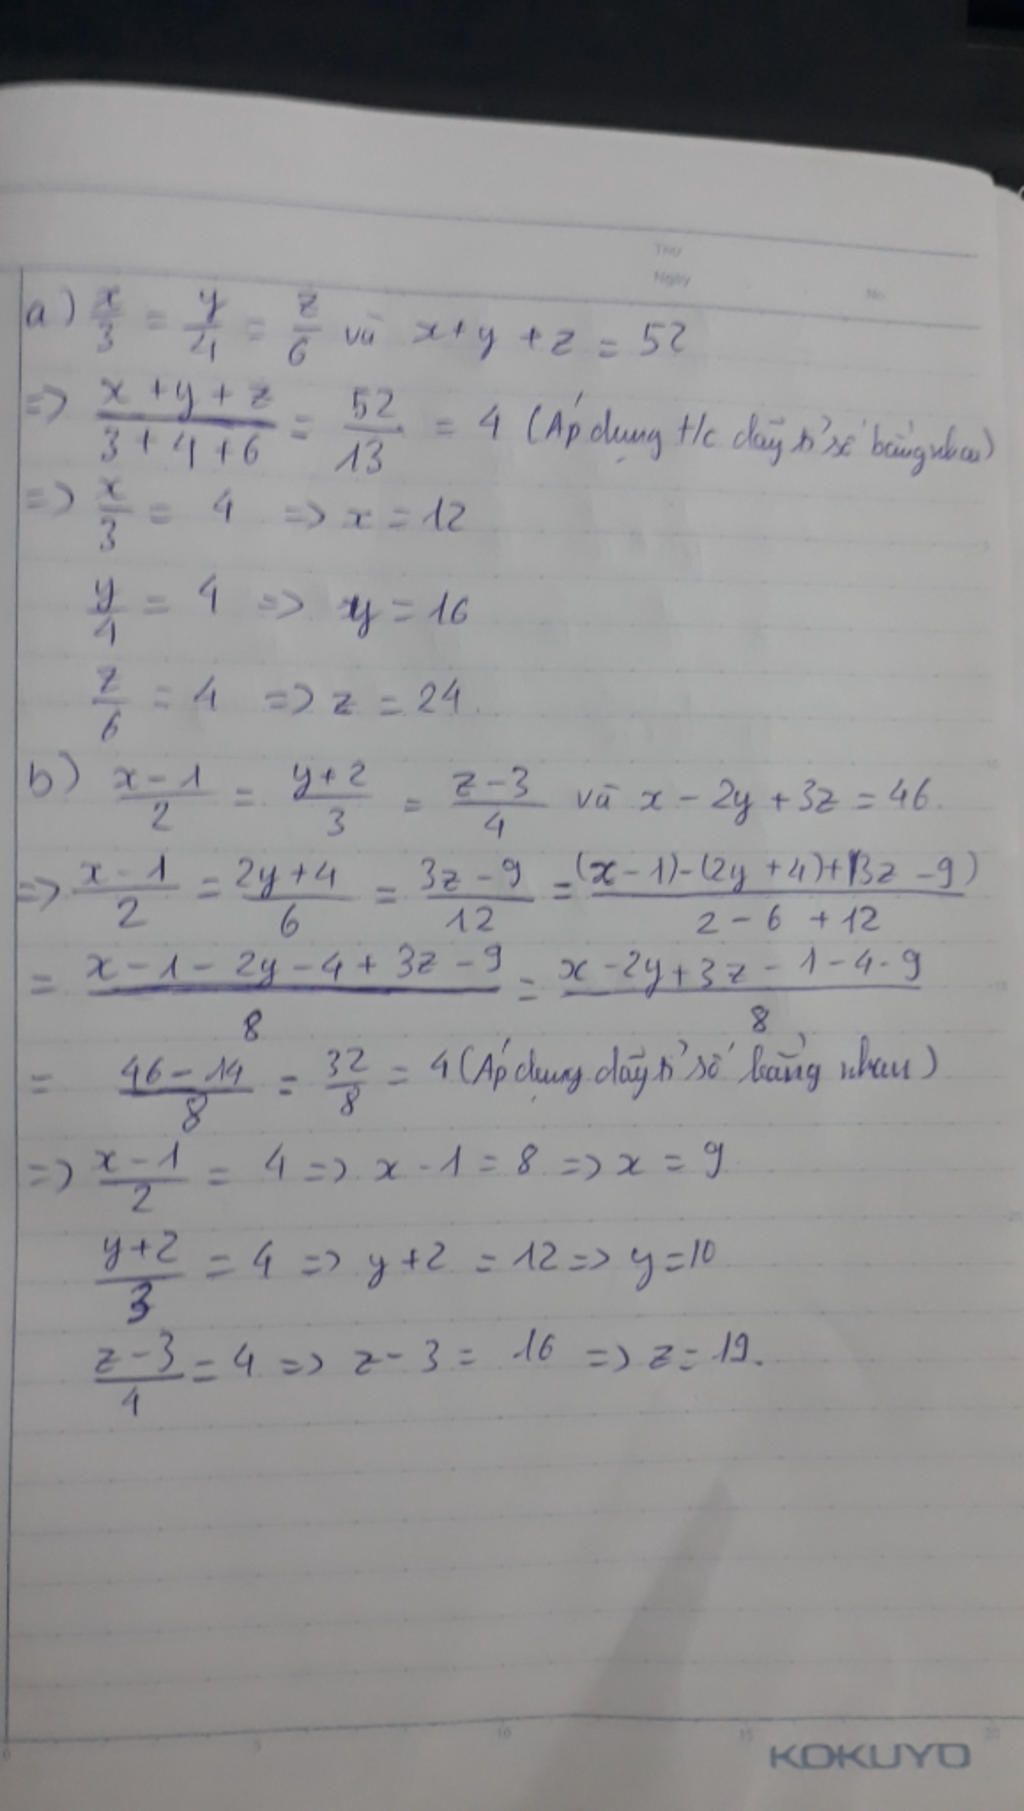 Thứ
Ngày
No
a) x/3 = y/4 = z/6 và x+y+z = 52
=> (x+y+z)/(3+4+6) = 52/13 = 4 (Áp dụng t/c dãy tỉ số bằng nhau)
=> x/3 = 4 => x = 12
y/4 = 4 => y = 16
z/6 = 4 => z = 24
b) (x-1)/2 = (y+2)/3 = (z-3)/4 và x - 2y + 3z = 46.
=> (x-1)/2 = (2y+4)/6 = (3z-9)/12 = ((x-1)-(2y+4)+(3z-9))/(2-6+12)
= (x-1-2y-4+3z-9)/8 = (x-2y+3z-1-4-9)/8
= (46-14)/8 = 32/8 = 4 (Áp dụng dãy tỉ số bằng nhau)
=> (x-1)/2 = 4 => x-1 = 8 => x = 9
(y+2)/3 = 4 => y+2 = 12 => y = 10
(z-3)/4 = 4 => z-3 = 16 => z = 19.
0 5 10 15 20
KOKUYO